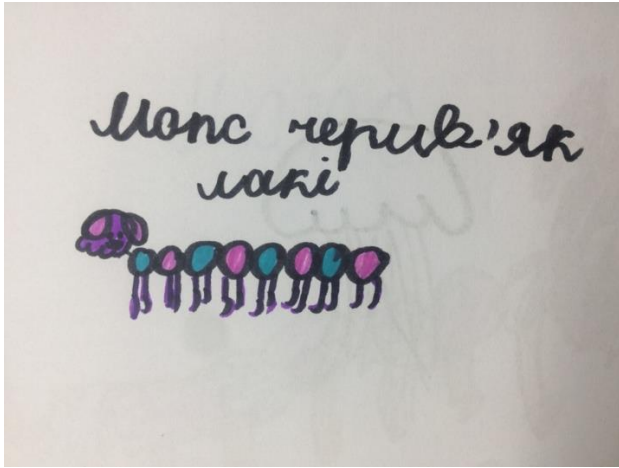 Мопс черив'як
лакі